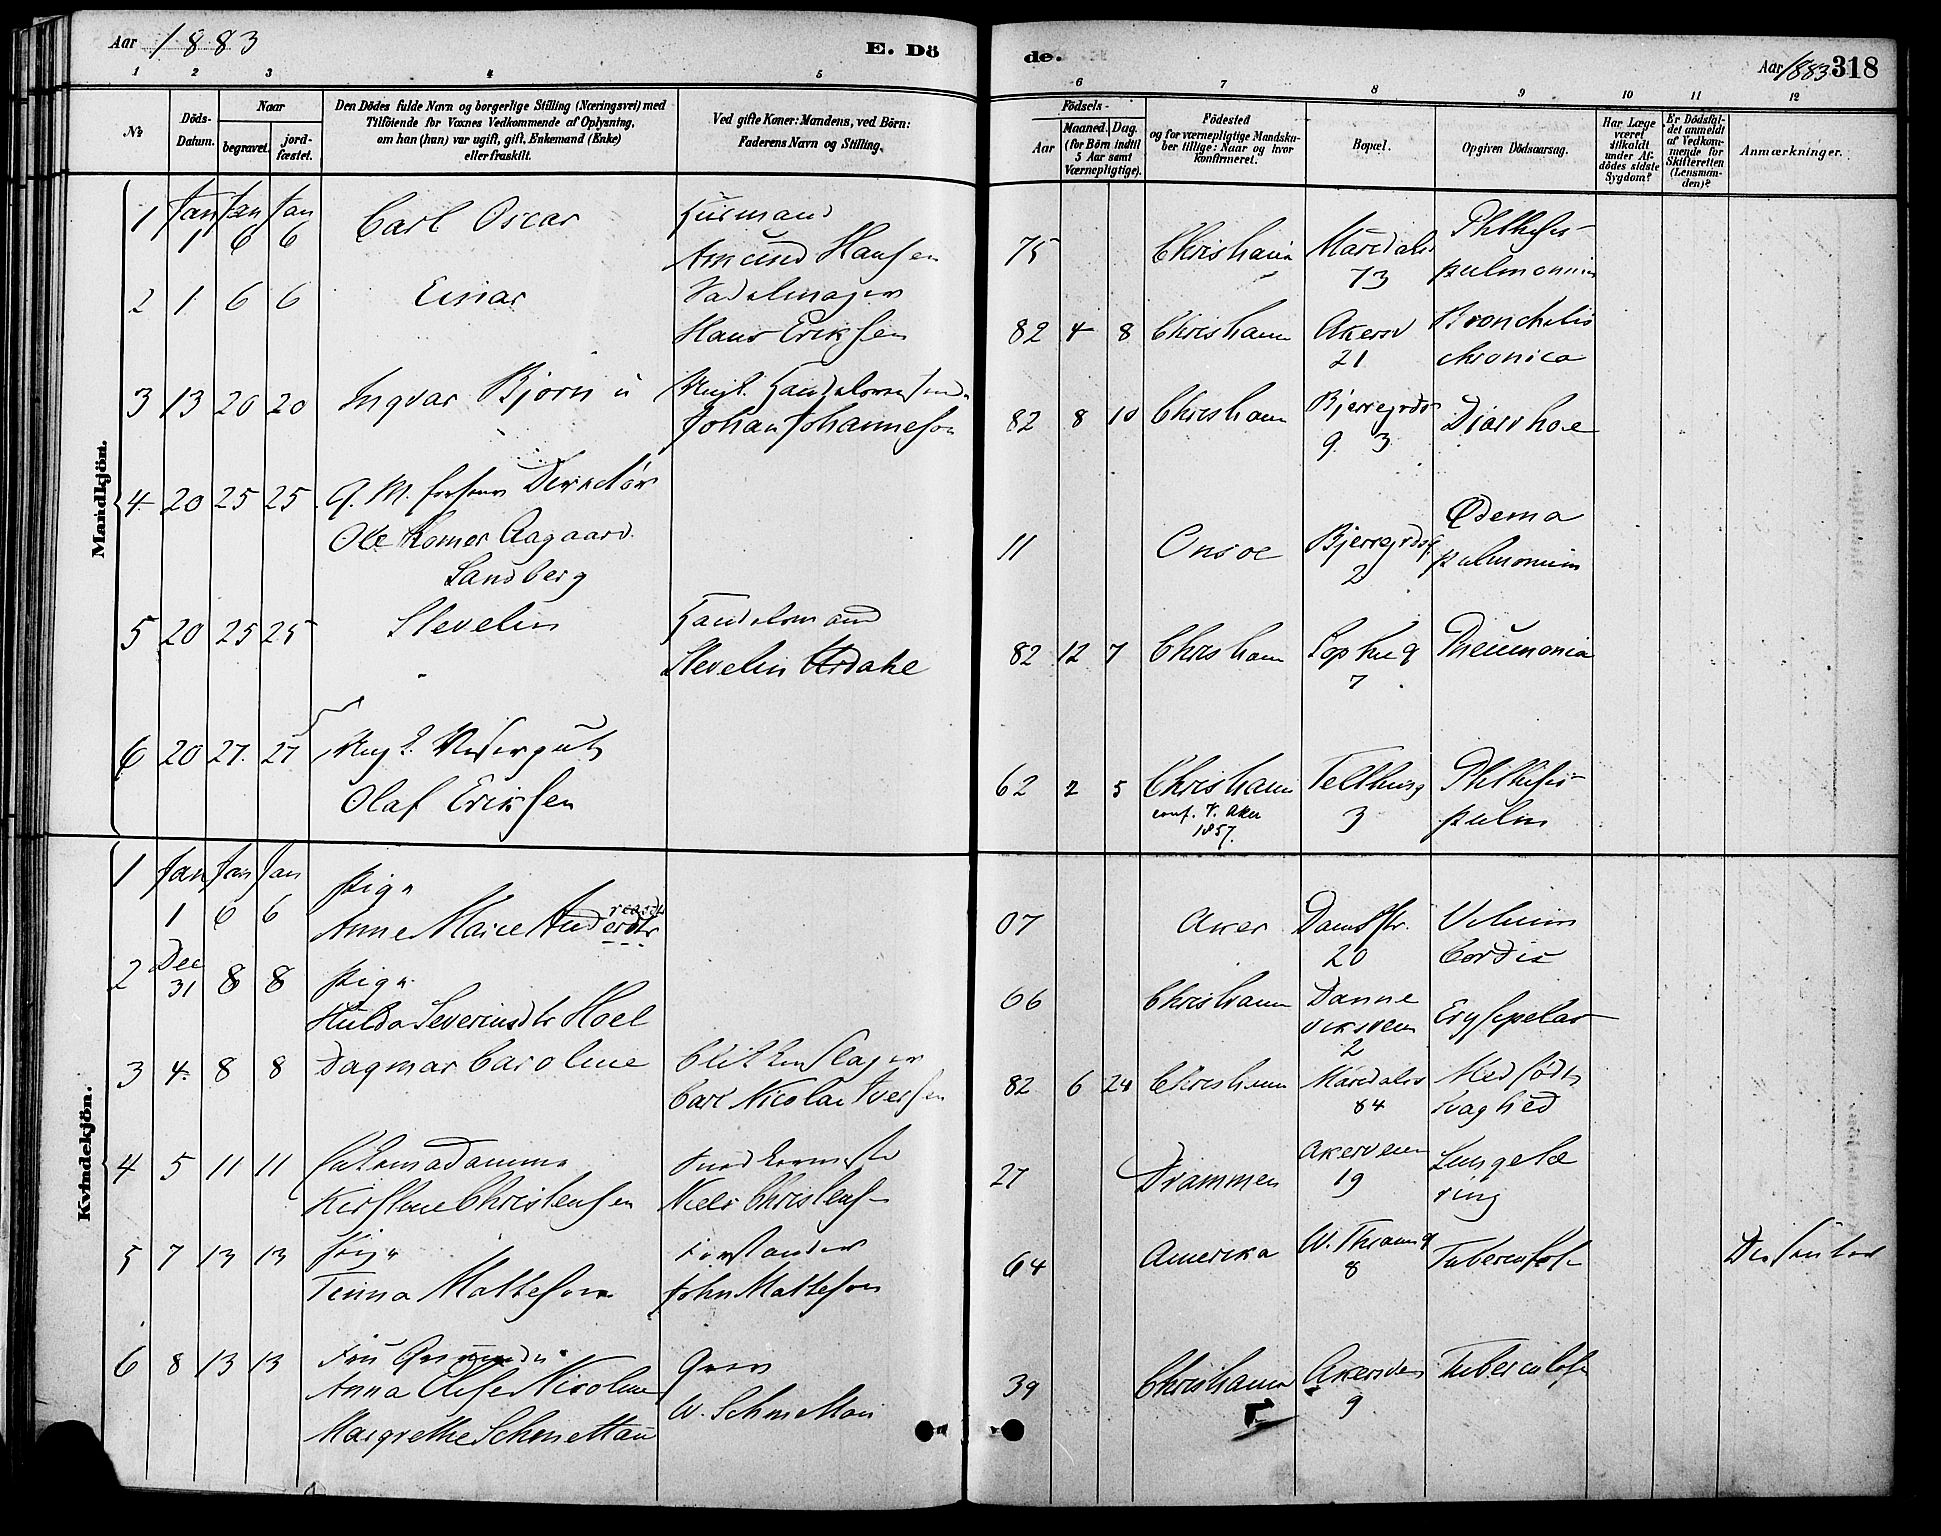 Aar 1883
E. Dö
de.
Aar 1883 318
1 2 3 4 5 6 7 8 9 10 11 12
No
Döds-
Datum.
Naar
begravet.
jord-
fæstet.
Den Dödes fulde Navn og borgerlige Stilling (Næringsvei) med
Tilföiende for Voxnes Vedkommende af Oplysning,
om han (hun) var ugift, gift, Enkemand (Enke)
eller fraskilt.
Ved gifte Koner: Mandens, ved Börn:
Faderens Navn og Stilling.
Födsels-
Aar
Maaned. Dag.
(for Börn indtil
5 Aar samt
Værnepligtige).
Födested
og for værnepligtige Mandsku-
ber tillige: Naar og hvor
konfirmeret.
Bopæl.
Opgiven Dödsaarsag.
Har Læge
været
tilkaldt
under Af-
dödes sidste
Sygdom?
Er Dödsfal-
det anmeldt
af Vedkom-
mende for
Skifteretten
(Lensman-
den)?
Anmærkninger.
Mandkjön.
1 Jan 1 Jan 6 Jan 6 Carl Oscar
Husmand
Amund Hansen
75 Christiania Maridalsv 73
Phthisis
pulmonum
2 1 6 6 Einar
Hans Eriksen
82 4 8 Christiania Akersv 21
Bronchitis
chronica
3 13 20 20 Ingvar Bjørn
Johan Johannesen
82 8 10 Christiania Bjerregrds 9 3 Diarrhoe
4 20 25 25 G. M. Direktør
Ole Aagaard
Sandberg
11 Onsoe Bjerregrdsg 2
Ødema
pulmonum
5 20 25 25 Stevelin
Handelsmand
Stevelin Urdahe
82 12 7 Christiania Sophieg 7 Pneumonia
6 20 27 27 Ungk. Visergut
Olaf Eriksen
62 2 5 Christiania
conf. V. Aker
1857.
3
Phthisis
pulm
Kvindekjön.
1 Jan 1 Jan 6 Jan 6 Pige
Anne Marie Andersdtr
07 Aker Damstr. 20
Vitium
Cordis
2 Dec 31 8 8 Pige
Hulda Severinsdtr Hoel
66 Christiania Danne
viksveien
2
Erysipelas
3 4 8 8 Dagmar Caroline
Blikkenslager
Carl Nicolai Iversen
82 6 24 Christiania Maridalsv 84
Medfødt
Svaghed
4 5 11 11
Kirstine Christensen
Niels Christensen
27 Drammen Akersveien 19
5 7 13 13 Pige
Tinna Matteson
Forstander
John Matteson
64 Amerika W. Thranesg 8 Tuberculose
Dissenter
6 8 13 13 Fru
Anna Elise Nicoline
Margrethe Schmettau
W. Schmettau
39 Christiania Akersvei 9 Tuberculose